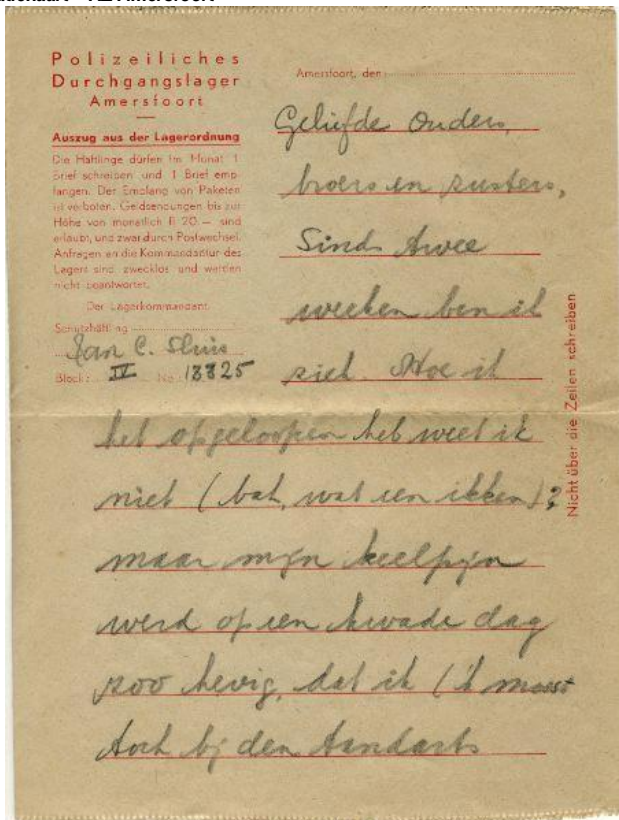 Polizeiliches
Durchgangslager
Amersfoort
Auszug aus der Lagerordnung
Die Häftlinge dürfen im Monat 1
Brief schreiben und 1 Brief emp-
fangen. Der Empfang von Paketen
ist verboten. Geldsendungen bis zur
Höhe von monatlich fl 20.— sind
erlaubt, und zwar durch Postwechsel.
Anfragen an die Kommandantur des
Lagers sind zwecklos und werden
nicht beantwortet.
Der Lagerkommandant.
Schutzhäftling
Jan C. Sluis
Block: IV No 13825
Amersfoort, den
Geliefde Ouders,
broers en zusters,
Sinds twee
weeken ben ik
ziek. Hoe ik
het opgeloopen heb weet ik
niet (bah, wat een ikken)?
maar mijn keelpijn
werd op een kwade dag
zoo hevig, dat ik (ik moest
toch bij den tandarts
Nicht über die Zeilen schreiben